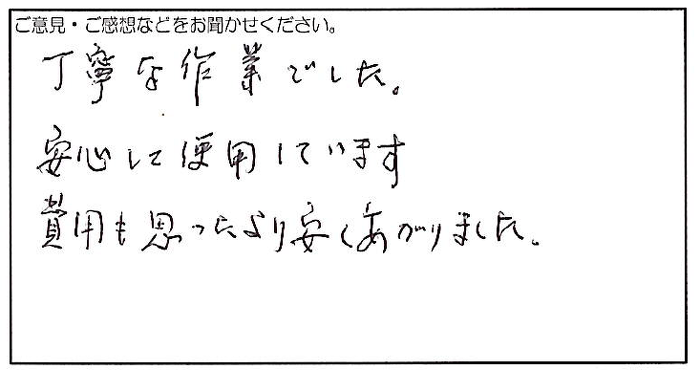 ご意見・ご感想などをお聞かせください。
丁寧な作業でした。
安心して使用しています
費用も思ったより安くあがりました。